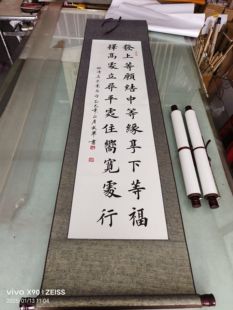 發上等願結中等緣享下等福
擇高處立尋平處住嚮寬處行
vivo X90 | ZEISS
2025/01/13 11:04